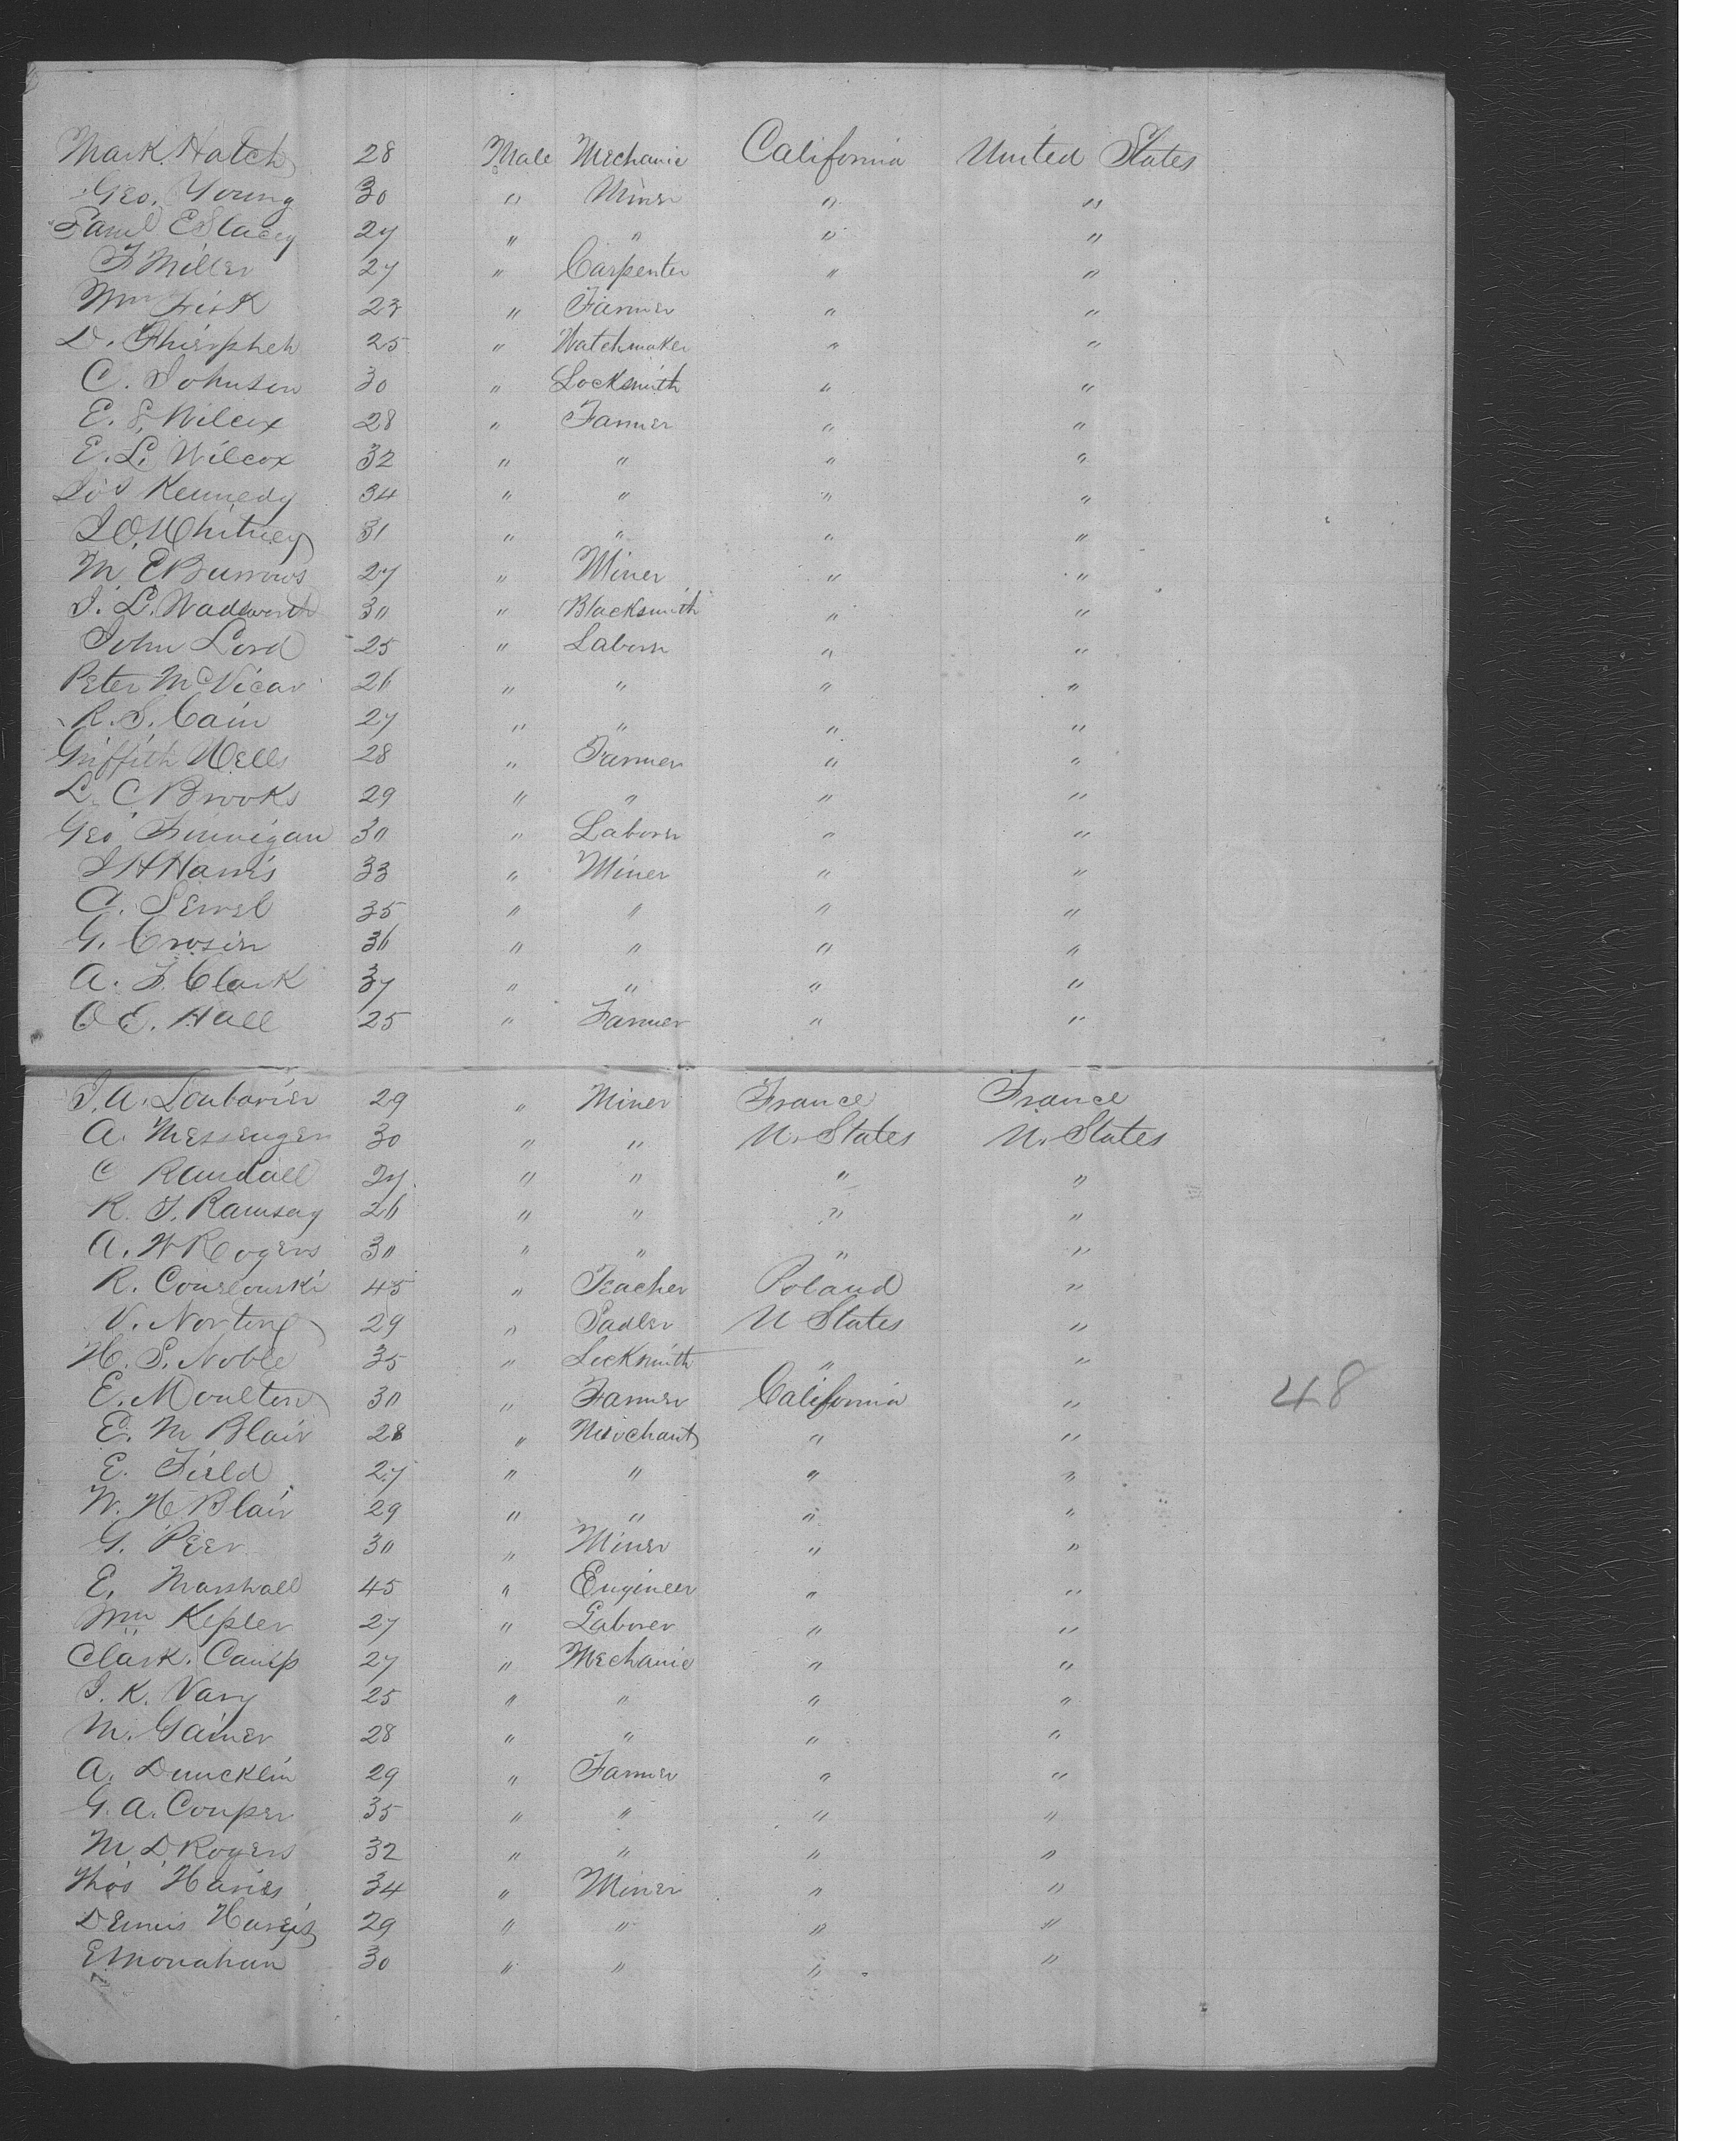 Mark Hatch 28 Male Mechanic California United States
Geo. Young 30 " Miner " "
Saml E Stacey 27 " " " "
F Miller 27 " Carpenter " "
Wm Fisk 23 " Farmer " "
D. 25 " Watchmaker " "
C. Johnson 30 " Locksmith " "
E. S. Wilcox 28 " Farmer " "
E. L. Wilcox 32 " " " "
Jos Kennedy 34 " " " "
J O. Whitney 31 " " " "
M. E Burrows 27 " Miner " "
J. L. Wadsworth 30 " Blacksmith " "
John Lord 25 " Laborer " "
Peter McVicar 26 " " " "
R. S. Cain 27 " " " "
Griffith Wells 28 " Farmer " "
L. C Brooks 29 " " " "
Geo Finnigan 30 " Laborer " "
J H Harris 33 " Miner " "
A. Sewel 35 " " " "
G. Crosin 36 " " " "
A. F. Clark 37 " " " "
O E. Hall 25 " Farmer " "
J. A. Loubarier 29 " Miner France France
A. Messenger 30 " " U. States U. States
C Randall 27 " " " "
R. J. Ramsay 26 " " " "
A. W Rogers 30 " " " "
R. 45 " Teacher Poland "
V. Norting 29 " Sadler U States "
H. S. Noble 35 " Locksmith " "
E. Moulton 30 " Farmer California " 48
E. M Blair 28 " Merchant " "
E. Field 27 " " " "
W. H Blair 29 " " " "
G. Peer 30 " Miner " "
E. Marshall 45 " Engineer " "
Wm Kepler 27 " Laborer " "
Clark. Camp 27 " Mechanic " "
J. K. Vary 25 " " " "
M. Gainer 28 " " " "
A. Duncklin 29 " Farmer " "
G. A. Couper 35 " " " "
M. D Rogers 32 " " " "
Thos Haries 34 " Miner " "
Dennis 29 " " " "
E Monahan 30 " " " "